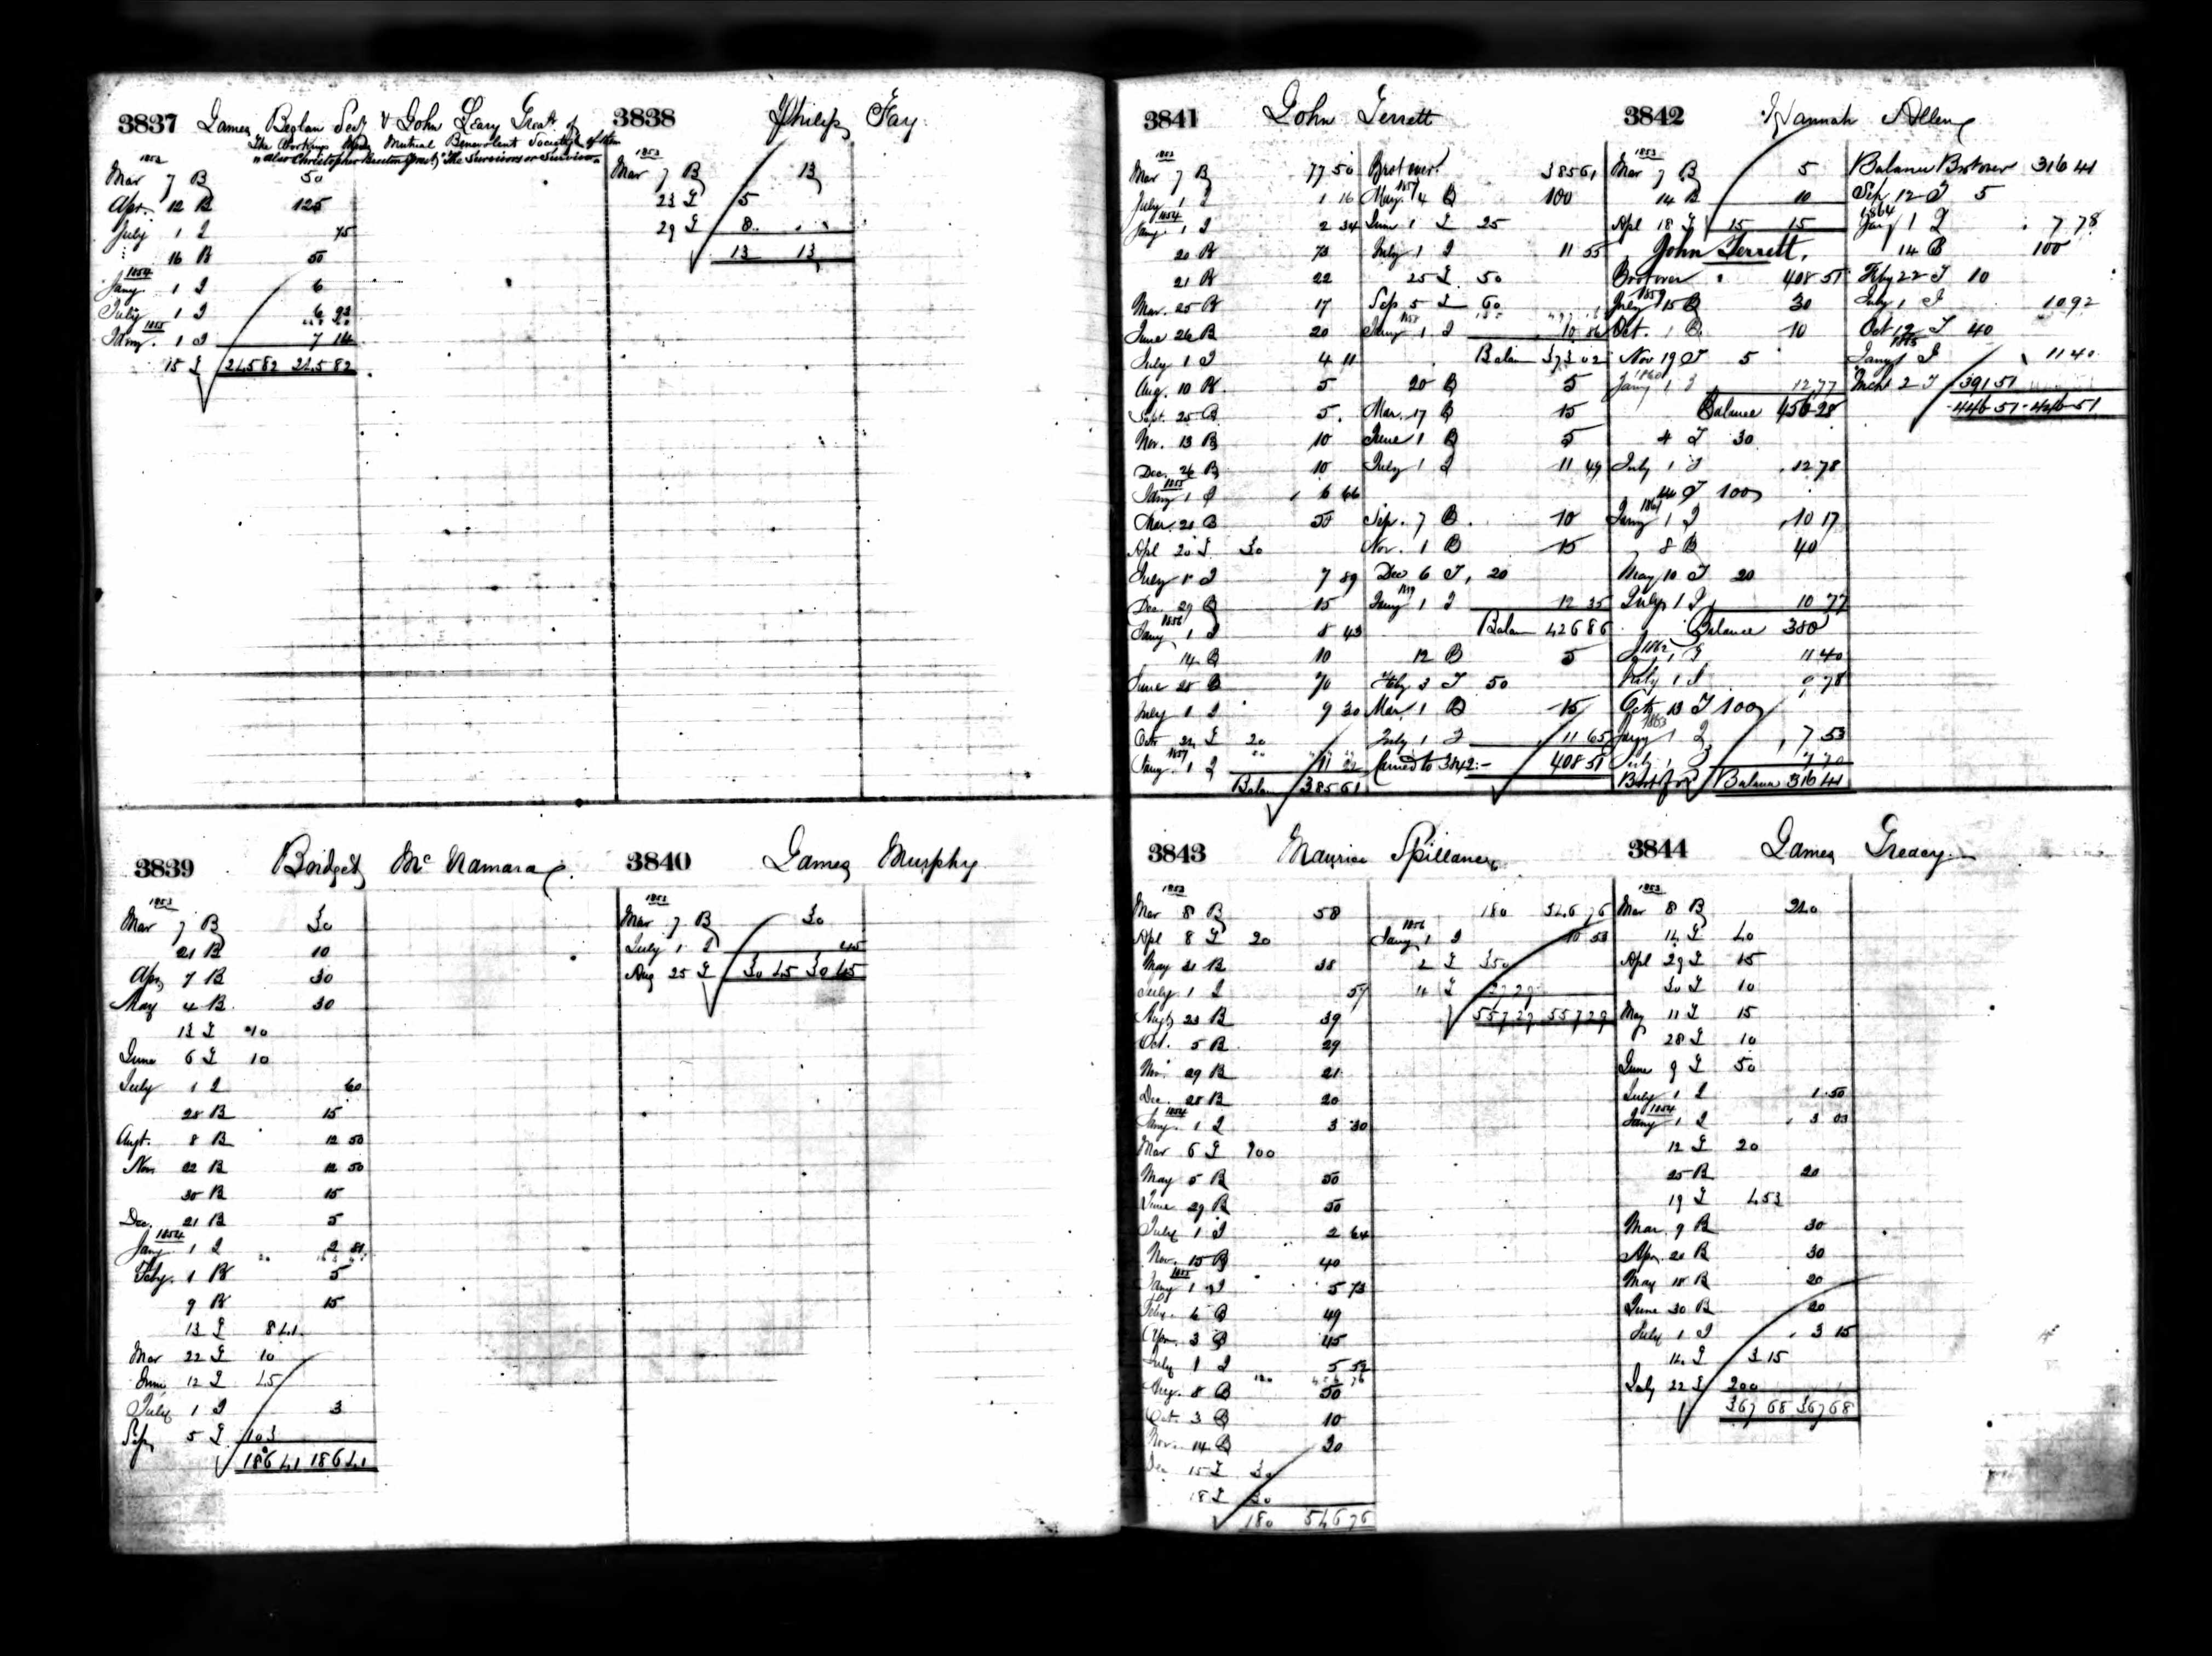 3837 James Beglan Secy & John Leary Treasr of
The Workings Mens Mutual Benevolent Society
also Christopher The Survivors or Survivor
1853
Mar 7 B 50
Apr. 12 B 125
July 1 I 75
16 B 50
1854
Jany. 1 I 6
July 1 I 6 93
1855
Jany. 1 I 7 14
15 T 245 82 245 82
3838 Philip Fay
1853
Mar 7 B 13
23 T 5
29 T 8
13 13
3839 Bridget McNamara
1853
Mar 7 B 30
21 B 10
Apr 7 B 30
May 4 B 30
13 T 10
June 6 T 10
July 1 I 60
28 B 15
Augt. 8 B 12 50
Nov 22 B 12 50
30 B 15
Dec. 21 B 5
1854
Jany 1 I 2 81
Feby. 1 B 5
9 B 15
13 T 8 41
Mar 22 T 10
June 12 T 45
July 1 I 3
Sep 5 T 103
186 41 186 41
3840 James Murphy
1853
Mar 7 B 30
July 1 I 45
Aug 25 T 30 45 30 45
3841 John Terrett
1853
Mar 7 B 77 50
July 1 I 1 16
1854
Jany. 1 I 2 34
20 B 73
21 B 22
Mar. 25 B 17
June 26 B 20
July 1 I 4 11
Aug. 10 B 5
Sept. 25 B 5
Nov. 13 B 10
Dec. 26 B 10
1855
Jany 1 I 6 66
Mar. 21 B 50
Apl 20 T 30
July 1 I 7 89
Dec. 29 B 15
1856
Jany 1 I 8 43
14 B 10
June 28 B 70
July 1 I 9 30
Octr 22 T 20
1857
Jany. 1 I 11 22
Balan 385 61
Brot over 385 61
1857
May. 4 B 100
June 1 T 25
July 1 I 11 55
25 T 50
Sep 5 T 60
1858
Jany 1 I 10 86
Balan 373 02
20 B 5
Mar. 17 B 15
June 1 B 5
July 1 I 11 49
Sep. 7 B 10
Nov. 1 B 15
Dec 6 T 20
1859
Jany 1 I 12 35
Balan 426 86
12 B 5
Feby 3 T 50
Mar. 1 B 15
July 1 I 11 65
Carried to 3842:- 408 51
3842 Hannah Allen
1853
Mar 7 B 5
14 B 10
Apl 18 T 15 15
John Terrett.
Brot over 408 51
1859
July 15 B 30
Oct. 1 B 10
Nov 19 T 5
1860
Jany 1 I 12 77
Balance 456 28
4 T 30
July 1 I 12 78
T 100
1861
Jany 1 I 10 17
8 B 40
May 10 T 20
July 1 I 10 77
Balance 380
1862
1 I 11 40
July 1 I 9 78
Octr 13 T 100
1863
Jany 1 I 7 53
July 1 I 7 70
Brot for Balance 316 41
Balance Brot over 316 41
Sep 12 T 5
1864
Jany 1 I 7 78
14 B 100
Feby 22 T 10
July 1 I 10 92
Oct 12 T 40
1865
Jany 1 I 11 40
Mch 2 T 391 51
446 51 446 51
3843 Maurice Spillane
1853
Mar 8 B 58
Apl 8 T 20
May 21 B 38
July 1 I 59
Augt 23 B 39
Oct. 5 B 29
Nov. 29 B 21
Dec. 28 B 20
1854
Jany. 1 I 3 30
Mar 6 T 100
May 5 B 50
June 29 B 50
July 1 I 2 64
Nov. 15 B 40
1855
Jany 1 I 5 73
Feby. 6 B 49
Apr. 3 B 45
July 1 I 5 52
Aug. 8 B 50
Oct. 3 B 10
Nov. 14 B 30
Dec 15 T 30
18 T 30
180 546 76
180 546 76
1856
Jany 1 I 10 53
2 T 350
4 T 27 29
557 29 557 29
3844 James Treacy
1853
Mar 8 B 240
14 T 40
Apl 29 T 15
30 T 10
May 11 T 15
28 T 10
June 9 T 50
July 1 I 1 50
1854
Jany 1 I 3 03
12 T 20
25 B 20
19 T 4 53
Mar. 9 B 30
Apr. 20 B 30
May 18 B 20
June 30 B 20
July 1 I 3 15
14 T 3 15
July 22 T 200
367 68 367 68